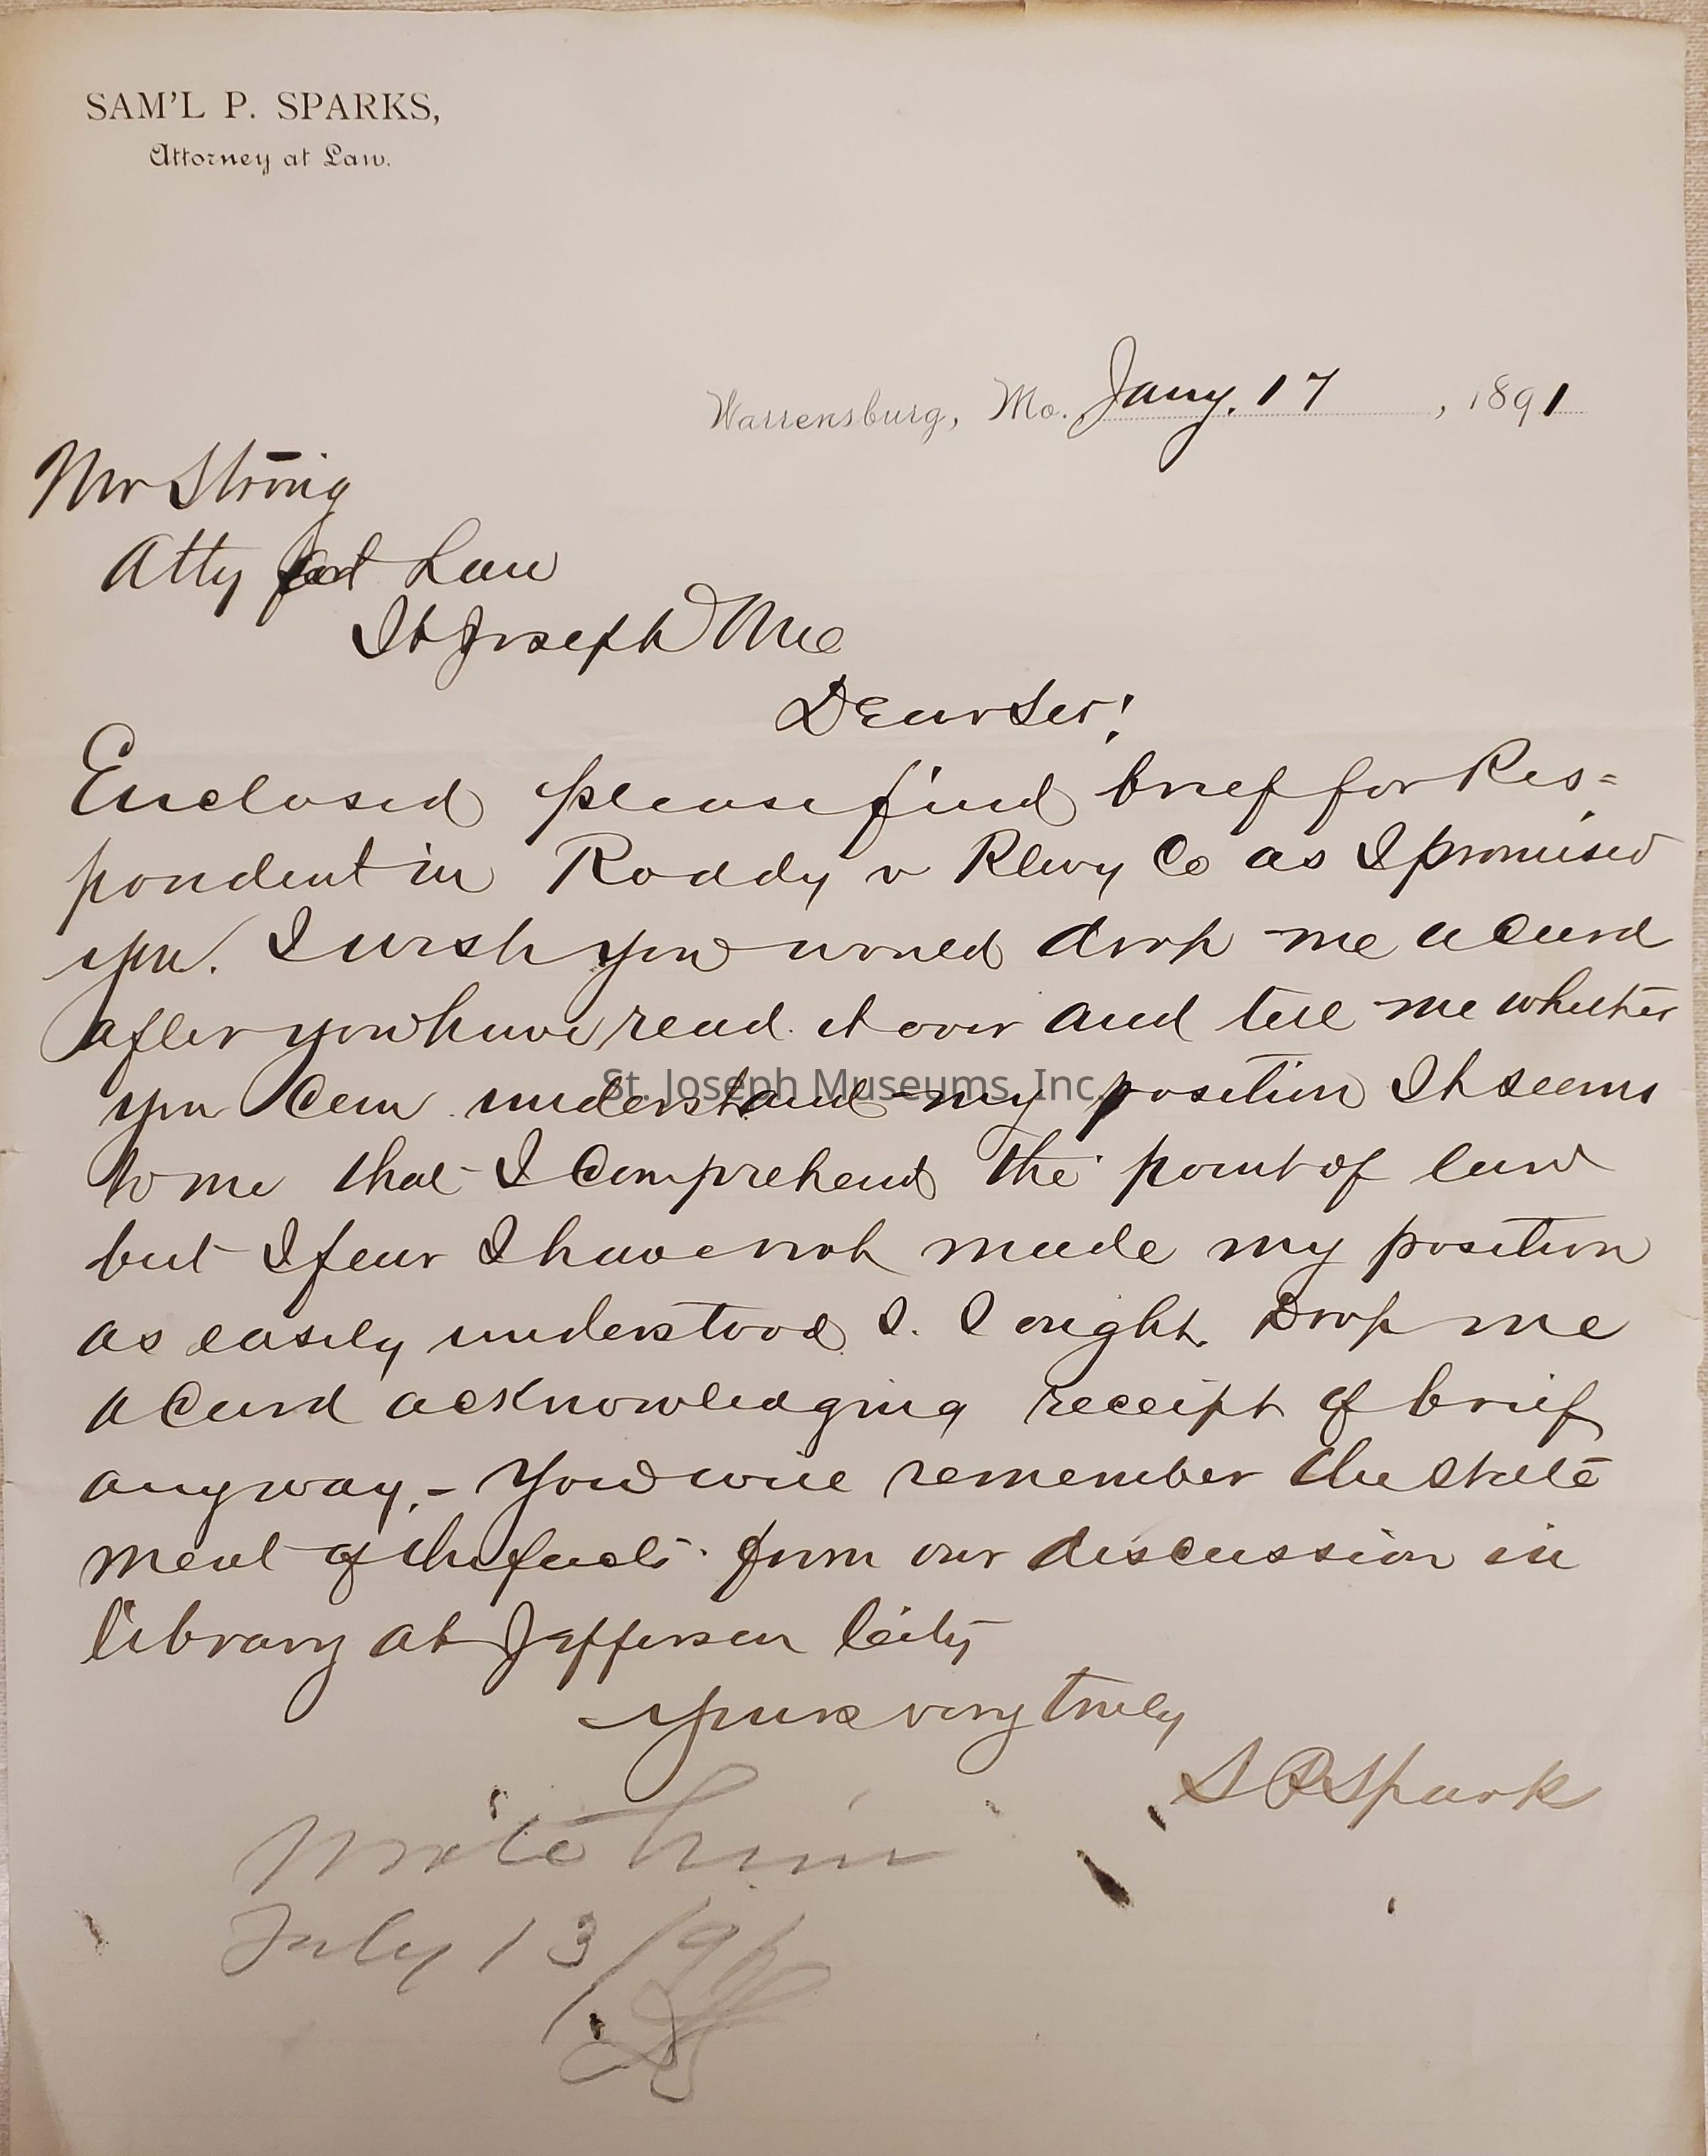 SAM'L P. SPARKS,
Attorney at Law.
Warrensburg, Mo. Jany. 17, 1891
Mr Strong
Atty at Law
St Joseph Mo
Dear Sir!
Enclosed please find brief for Res=
pondent in Roddy v Rlwy Co as I promised
you. I wish you would drop me a card
after you have read it over and tell me whether
you can understand my position It seems
to me that I comprehend the point of law
but I fear I have not made my position
as easily understood I. I ought. Drop me
a card acknowledging receipt of brief
anyway. - You will remember the state
ment of the facts from our discussion in
library at Jefferson City
yours very truly
S P Sparks
Wrote him
July 13/91
St. Joseph Museums, Inc.